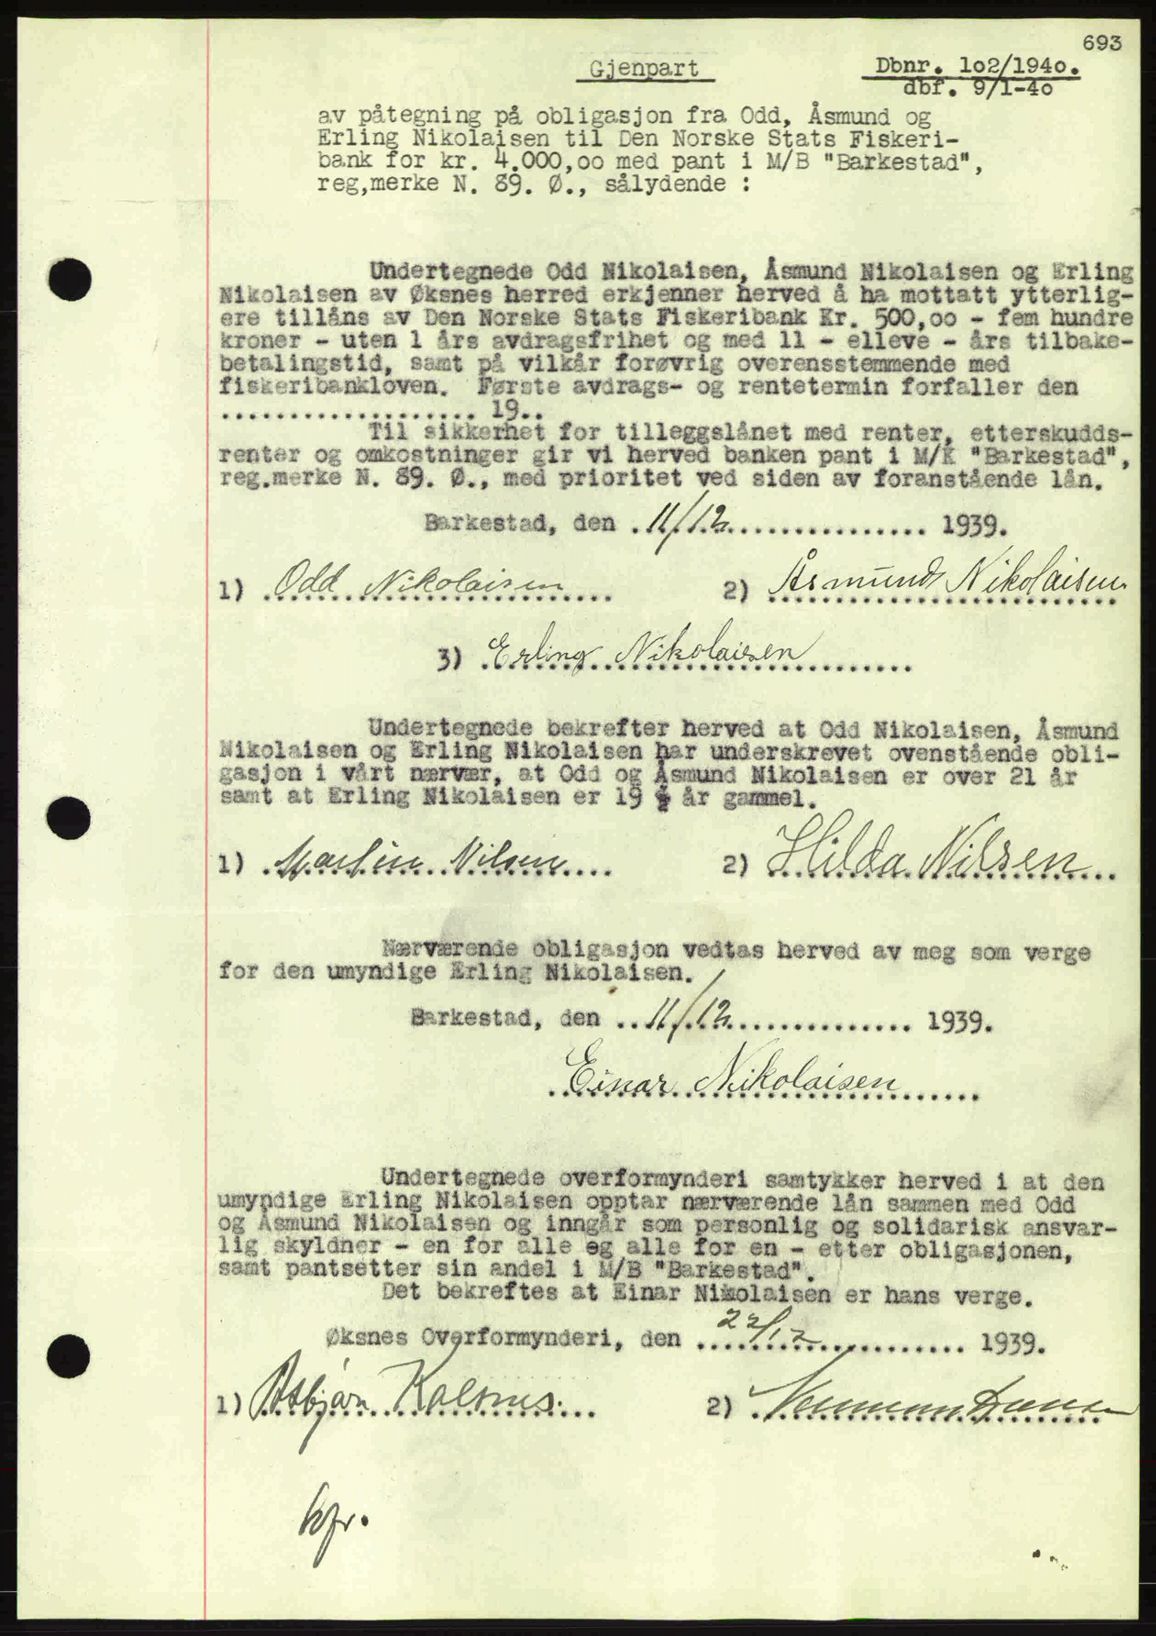 693
Gjenpart
Dbnr. 102/1940.
dbf. 9/1-40
av påtegning på obligasjon fra Odd, Åsmund og
Erling Nikolaisen til Den Norske Stats Fiskeri-
bank for kr. 4.000,oo med pant i M/B "Barkestad",
reg,merke N. 89. Ø., sålydende :
Undertegnede Odd Nikolaisen, Åsmund Nikolaisen og Erling
Nikolaisen av Øksnes herred erkjenner herved å ha mottatt ytterlig-
ere tillåns av Den Norske Stats Fiskeribank Kr. 500,oo - fem hundre
kroner - uten 1 års avdragsfrihet og med 11 - elleve - års tilbake-
betalingstid, samt på vilkår forøvrig overensstemmende med
fiskeribankloven. Første avdrags- og rentetermin forfaller den
................... 19..
Til sikkerhet for tilleggslånet med renter, etterskudds-
renter og omkostninger gir vi herved banken pant i M/K "Barkestad",
reg.merke N. 89. Ø., med prioritet ved siden av foranstående lån.
Barkestad, den 11/12 1939.
1) Odd Nikolaisen 2) Åsmund Nikolaisen
3) Erling Nikolaisen
Undertegnede bekrefter herved at Odd Nikolaisen, Åsmund
Nikolaisen og Erling Nikolaisen har underskrevet ovenstående obli-
gasjon i vårt nærvær, at Odd og Åsmund Nikolaisen er over 21 år
samt at Erling Nikolaisen er 19 ½ år gammel.
1) Martin Nilsen 2) Hilda Nilsen
Nærværende obligasjon vedtas herved av meg som verge
for den umyndige Erling Nikolaisen.
Barkestad, den 11/12 1939.
Einar Nikolaisen
Undertegnede overformynderi samtykker herved i at den
umyndige Erling Nikolaisen opptar nærværende lån sammen med Odd
og Åsmund Nikolaisen og inngår som personlig og solidarisk ansvar-
lig skyldner - en for alle og alle for en - etter obligasjonen,
samt pantsetter sin andel i M/B "Barkestad".
Det bekreftes at Einar Nikolaisen er hans verge.
Øksnes Overformynderi, den 22/12 1939.
1) Asbjørn 2)